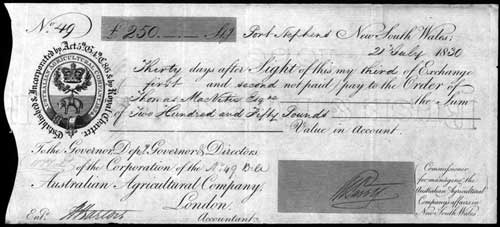 No. 49 £250.—.— Stg Port Stephens New South Wales;
21 July 1830
Thirty days after Sight of this my third of Exchange
first and second not paid pay to the Order of
Thomas Macvitie Esqre the Sum
of Two Hundred and Fifty Pounds
Value in Account.
To the Governor, Depy. Governor & Directors
of the Corporation of the No 49
Australian Agricultural Company,
London.
Entd. Accountant.
Established & Incorporated by Act 5th G. 4th C. 86 & by Royal Charter
AUSTRALIAN AGRICULTURAL COMPANY
Commissioner
for managing the
Australian Agricultural
Companys affairs in
New South Wales